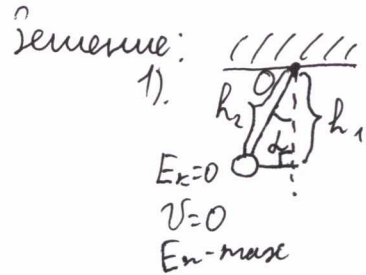 Решение:
1).
O
h₂
α
h₁
Eк=0
V=0
Eп-max